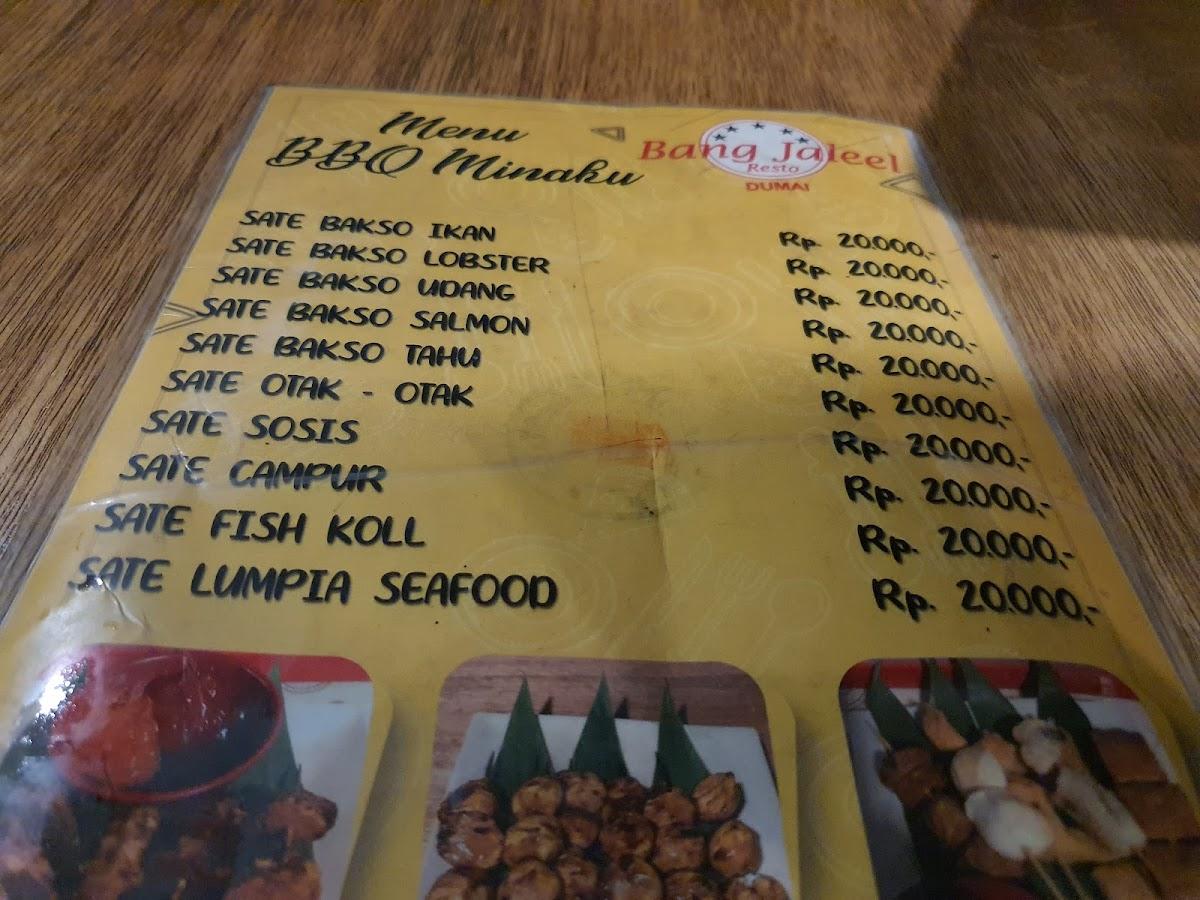 Menu
BBQ Minaku
Bang Jaleel
Resto
DUMAI
SATE BAKSO IKAN Rp. 20.000,-
SATE BAKSO LOBSTER Rp. 20.000,-
SATE BAKSO UDANG Rp. 20.000,-
SATE BAKSO SALMON Rp. 20.000,-
SATE BAKSO TAHU Rp. 20.000,-
SATE OTAK - OTAK Rp. 20.000,-
SATE SOSIS Rp. 20.000,-
SATE CAMPUR Rp. 20.000,-
SATE FISH KOLL Rp. 20.000,-
SATE LUMPIA SEAFOOD Rp. 20.000,-